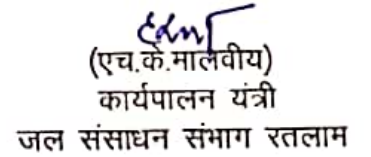 (एच.के.मालवीय)
कार्यपालन यंत्री
जल संसाधन संभाग रतलाम